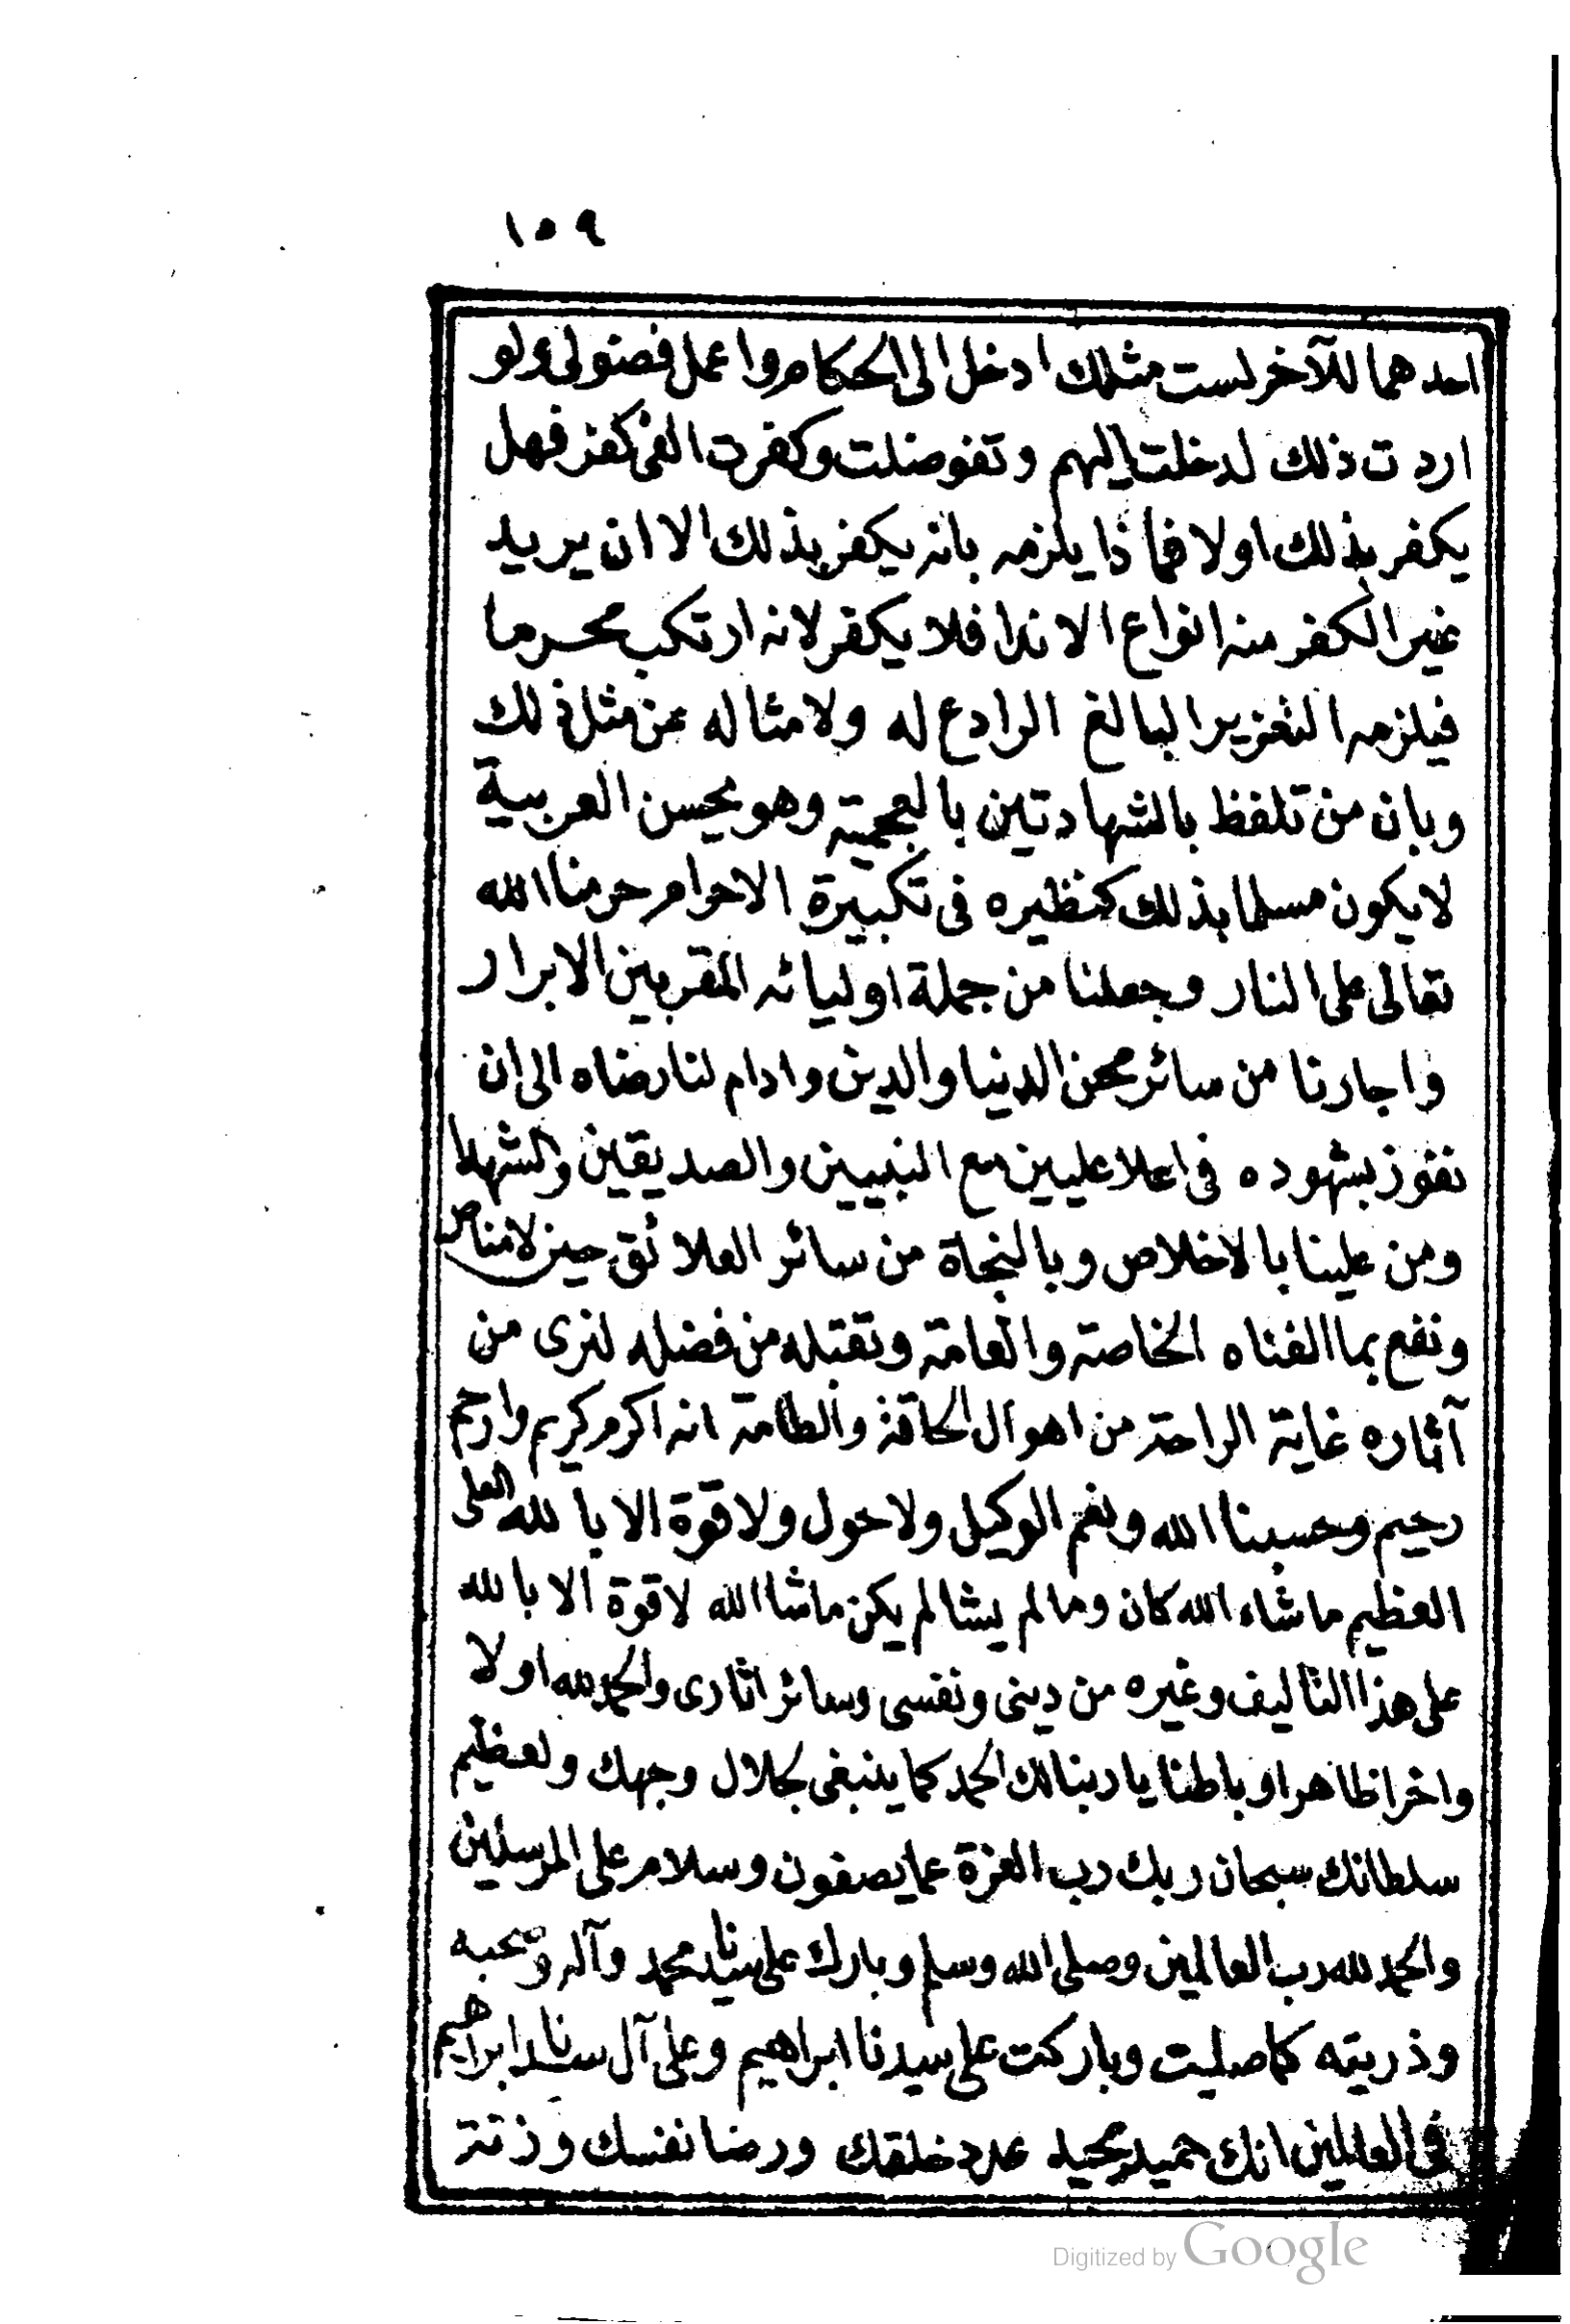 ١٥٩
احدهما للآخر لست مثلك ادخل الى الحكام واعمل فضولى ولو
اردت ذلك لدخلت اليهم وتفوضلت وكفرت الفى كفر فهل
يكفر بذلك اولا فما ذا يلزمه بانه يكفر بذلك الا ان يريد
غير الكفر منه انواع الاندا فلا يكفر لانه ارتكب محرما
فيلزمه التعزير البالغ الرادع له ولامثاله عن مثل ذلك
وبان من تلفظ بالشهادتين بالعجمية وهو يحسن العربية
لا يكون مسلما بذلك كنظيره فى تكبيرة الاحرام حرمنا الله
تعالى على النار وجعلنا من جملة اوليائه المقربين الابرار
واجارنا من سائر محن الدنيا والدين وادام لنا رضاه الى ان
نفوز بشهوده فى اعلا عليين مع النبيين والصديقين والشهدا
ومن علينا بالاخلاص وبالنجاة من سائر العلائق حين لامناص
ونفع بما الفناه الخاصة والعامة وتقبله من فضله لنرى من
آثاره غاية الراحة من اهوال الحاقة والطامة انه اكرم كريم وارحم
رحيم وحسبنا الله ونعم الوكيل ولا حول ولا قوة الا بالله العلى
العظيم ما شاء الله كان وما لم يشا لم يكن ماشا الله لا قوة الا بالله
على هذا التاليف وغيره من دينى ونفسى وسائر اثارى والحمد لله اولا
واخرا ظاهرا وباطنا يا ربنا لك الحمد كما ينبغى لجلال وجهك ولعظيم
سلطانك سبحان ربك رب العزة عما يصفون وسلام على المرسلين
والحمد لله رب العالمين وصلى الله وسلم وبارك على سيدنا محمد وآله وصحبه
وذريته كما صليت وباركت على سيدنا ابراهيم وعلى آل سيدنا ابراهيم
فى العالمين انك حميد مجيد عدد خلقك ورضا نفسك وزنة
Digitized by Google